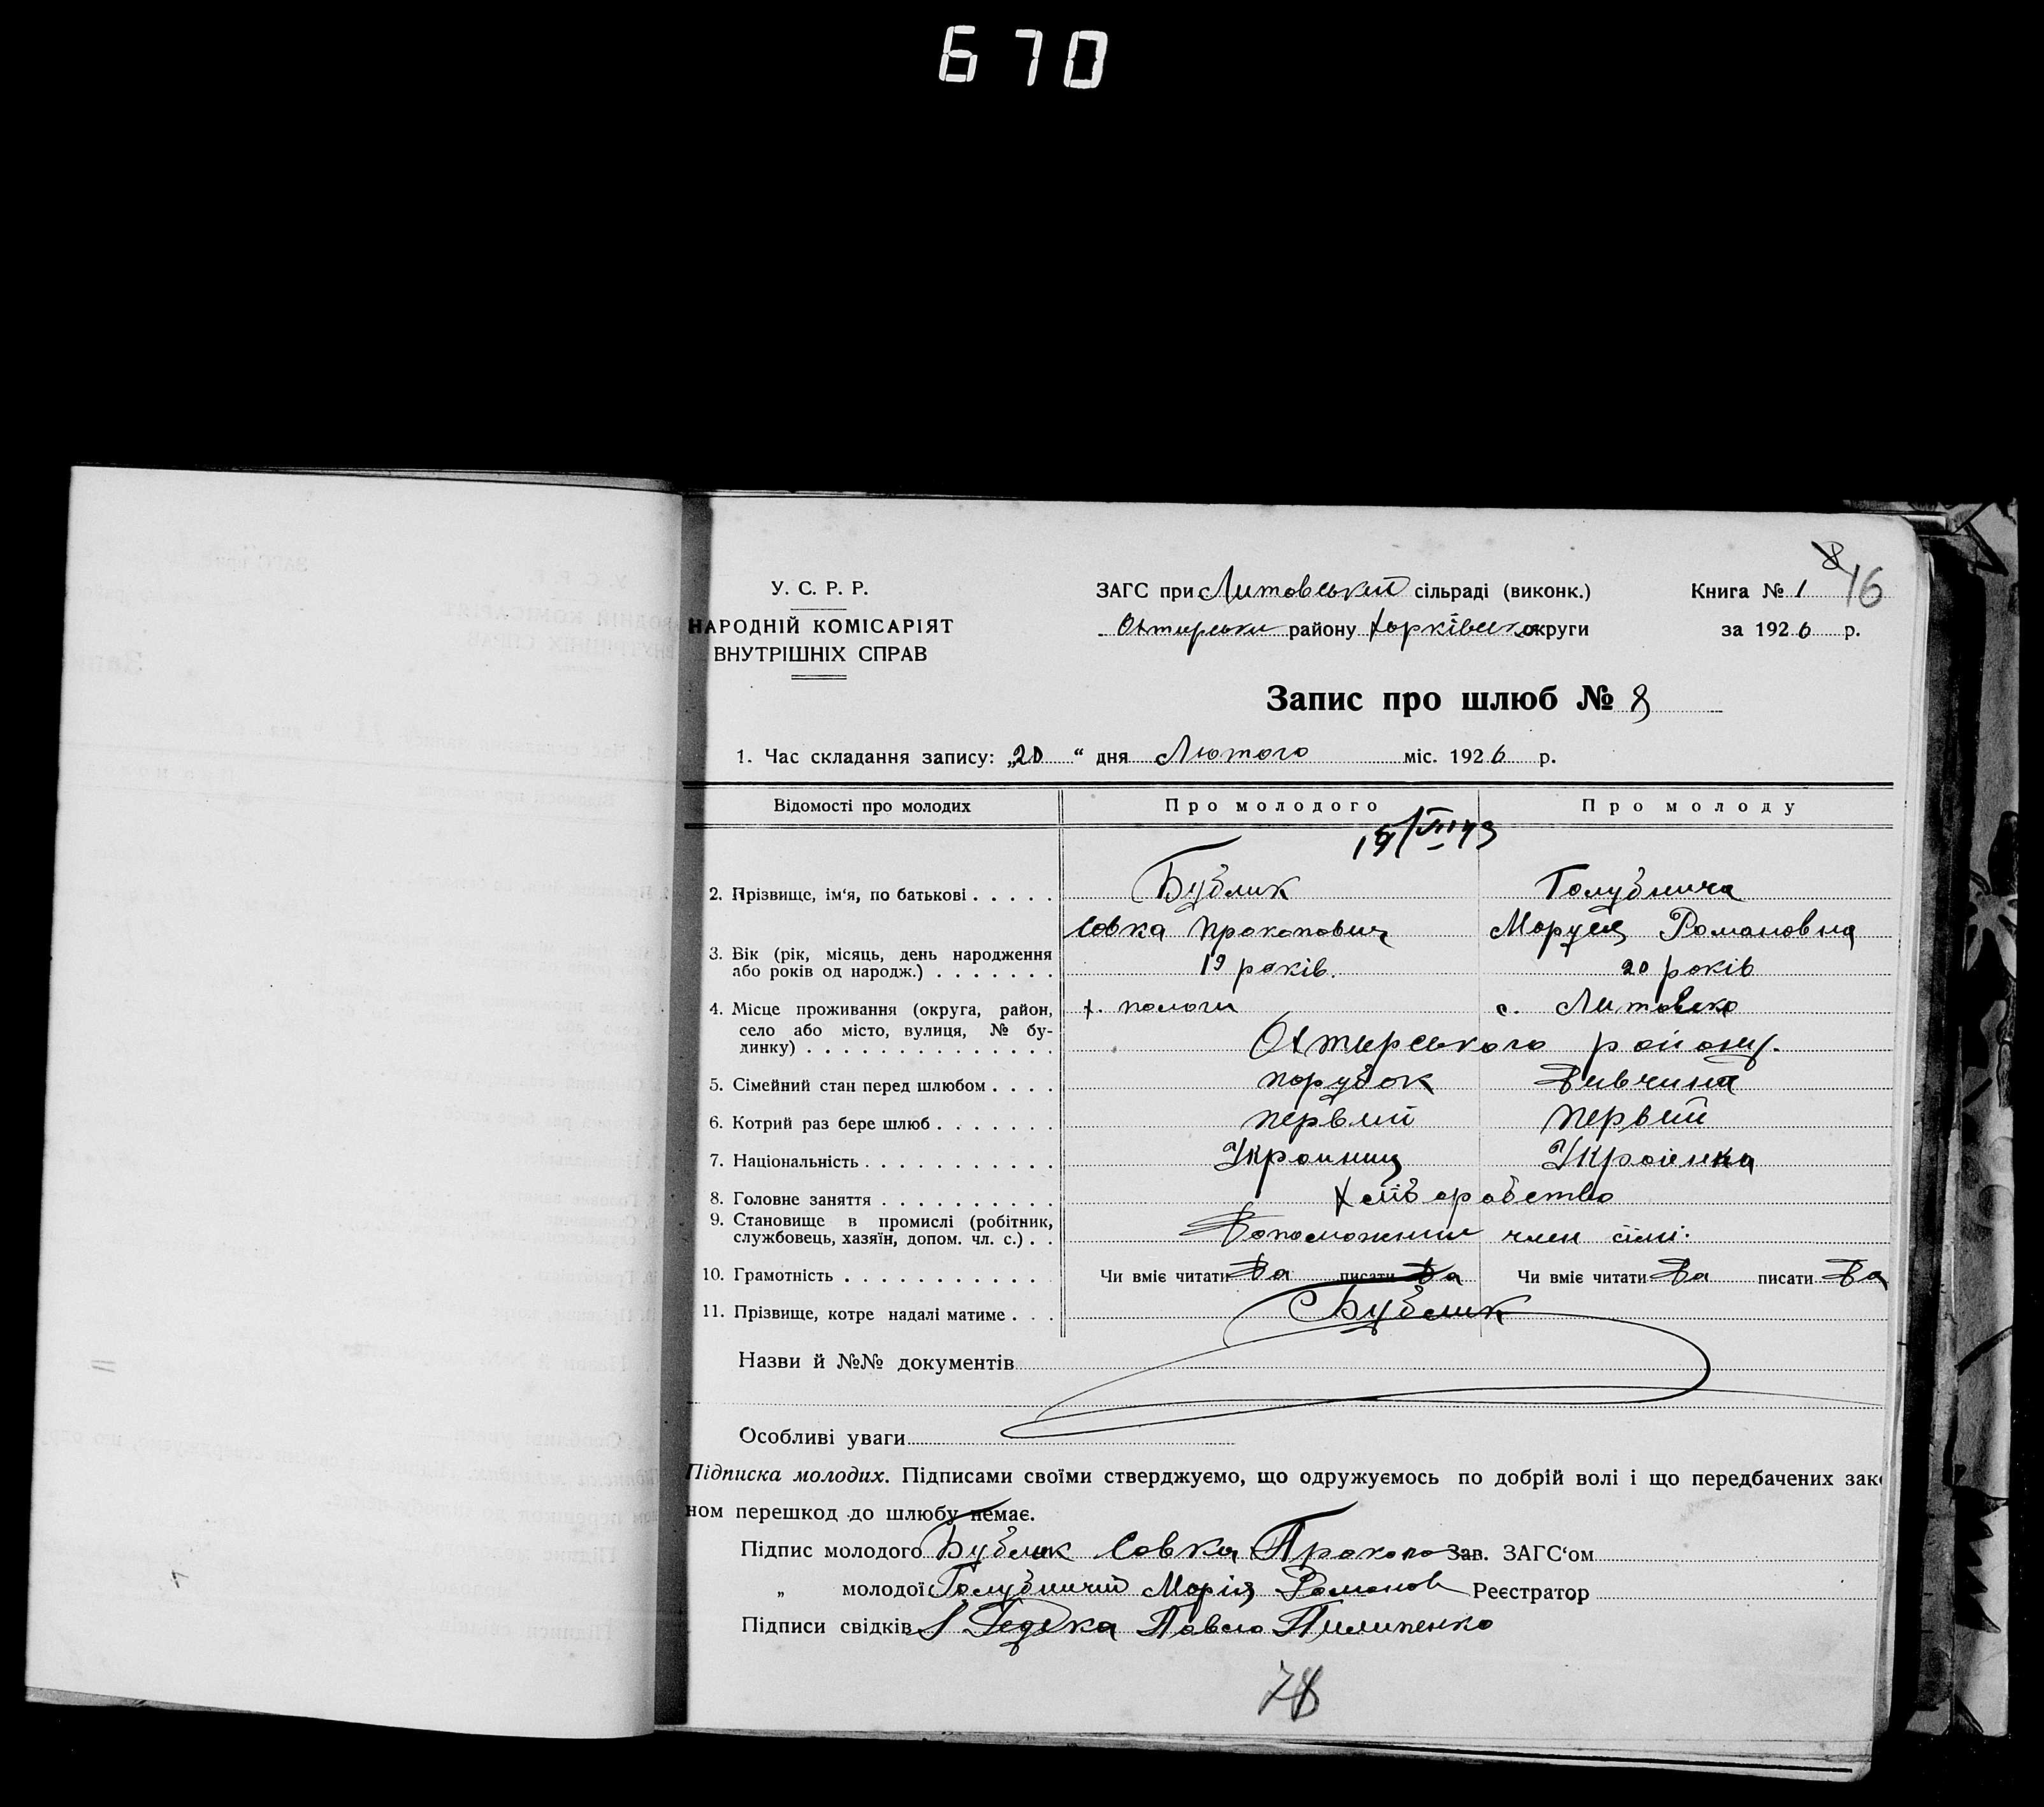 670
8 16
У. С. Р. Р.
НАРОДНІЙ КОМІСАРІЯТ
ВНУТРІШНІХ СПРАВ
ЗАГС при Литовський сільраді (виконк.)
Охтирськи району Харківсько округи
Книга № 1
за 1926 р.
Запис про шлюб № 8
1. Час складання запису: „20“ дня Лютого міс. 1926 р.
Відомості про молодих Про молодого Про молоду
2. Прізвище, ім‘я, по батькові . . . . . Бублик Голубнича
Совка Прокопович Маруся Романовна
3. Вік (рік, місяць, день народження
або років од народж.) . . . . . . . 19 років. 20 років
4. Місце проживання (округа, район, х. пологи с. Литовско
село або місто, вулиця, № бу-
динку) . . . . . . . . . . . . . . Охтирського району.
5. Сімейний стан перед шлюбом . . . . парубок Дивчина
6. Котрий раз бере шлюб . . . . . . . первий первий
7. Національність . . . . . . . . . . . Украинец Украінка
8. Головне заняття . . . . . . . . . . Хліборобство
9. Становище в промислі (робітник,
службовець, хазяїн, допом. чл. с.) . . Допоможний член сімі.
10. Грамотність . . . . . . . . . . . . Чи вміє читати Да писати Да Чи вміє читати Да писати Да
11. Прізвище, котре надалі матиме . . . Бублик
Назви й №№ документів
Особливі уваги
Підписка молодих. Підписами своїми стверджуємо, що одружуємось по добрій волі і що передбачених зако
ном перешкод до шлюбу немає.
Підпис молодого Бублик Совка Прокопо Зав. ЗАГС‘ом
„ молодої Голубничий Марія Романов Реєстратор
Підписи свідків Павло Пилипенко
78